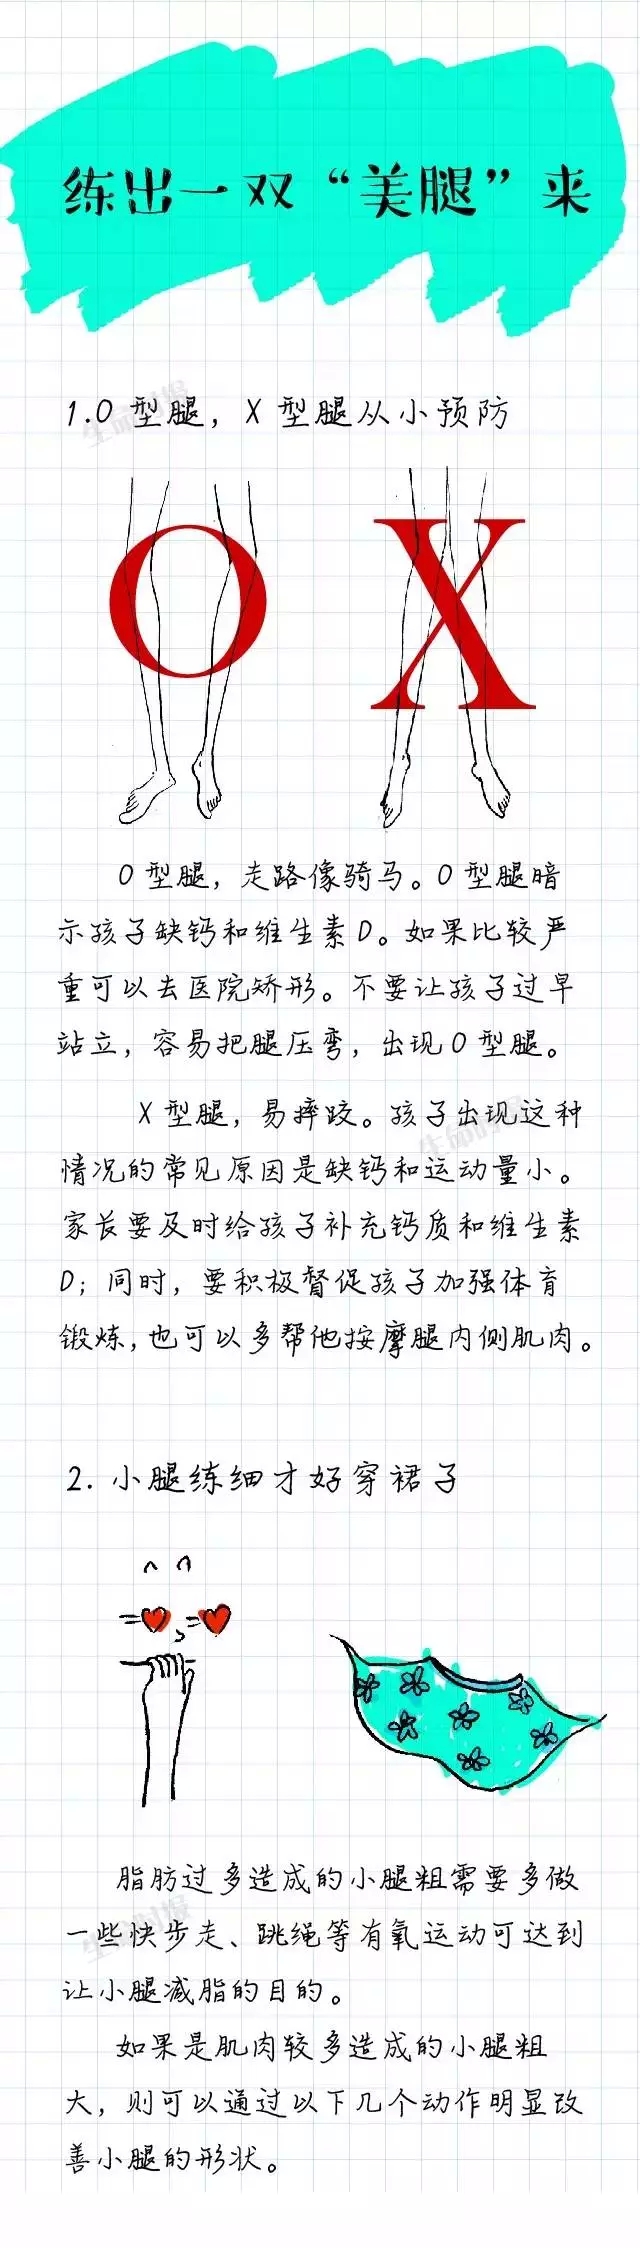 练出一双“美腿”来
1.O型腿，X型腿从小预防
生命时报
O X
O型腿，走路像骑马。O型腿暗
示孩子缺钙和维生素D。如果比较严
重可以去医院矫形。不要让孩子过早
站立，容易把腿压弯，出现O型腿。
X型腿，易摔跤。孩子出现这种
生命时报
情况的常见原因是缺钙和运动量小。
家长要及时给孩子补充钙质和维生素
D；同时，要积极督促孩子加强体育
锻炼，也可以多帮他按摩腿内侧肌肉。
2.小腿练细才好穿裙子
脂肪过多造成的小腿粗需要多做
生命时报
一些快步走、跳绳等有氧运动可达到
让小腿减脂的目的。
如果是肌肉较多造成的小腿粗
大，则可以通过以下几个动作明显改
善小腿的形状。